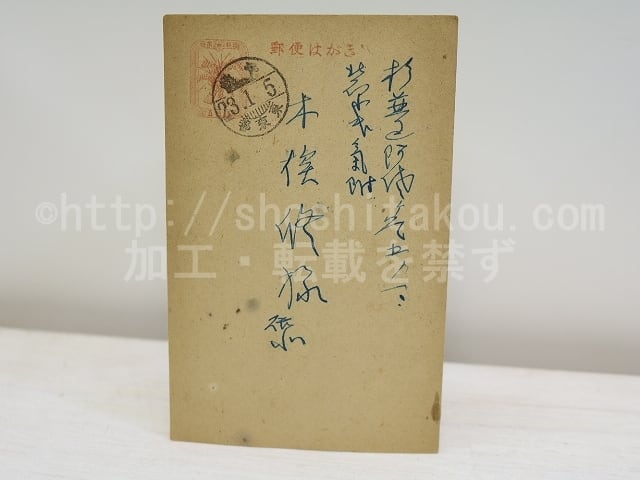 郵便はがき
23.1.5
東京
杉並区阿佐ヶ谷五ノ一
氣附
木俣修様
©http://shoshitakou.com
加工・転載を禁ず